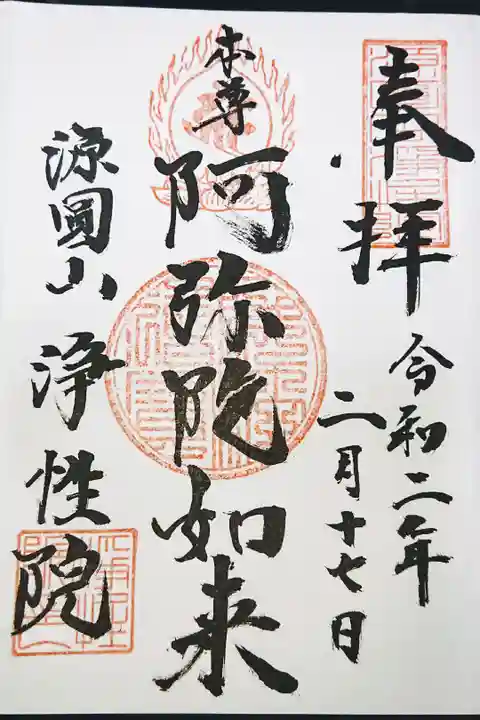 奉拝
令和二年
二月十七日
本尊
阿弥陀如来
源圓山浄性院